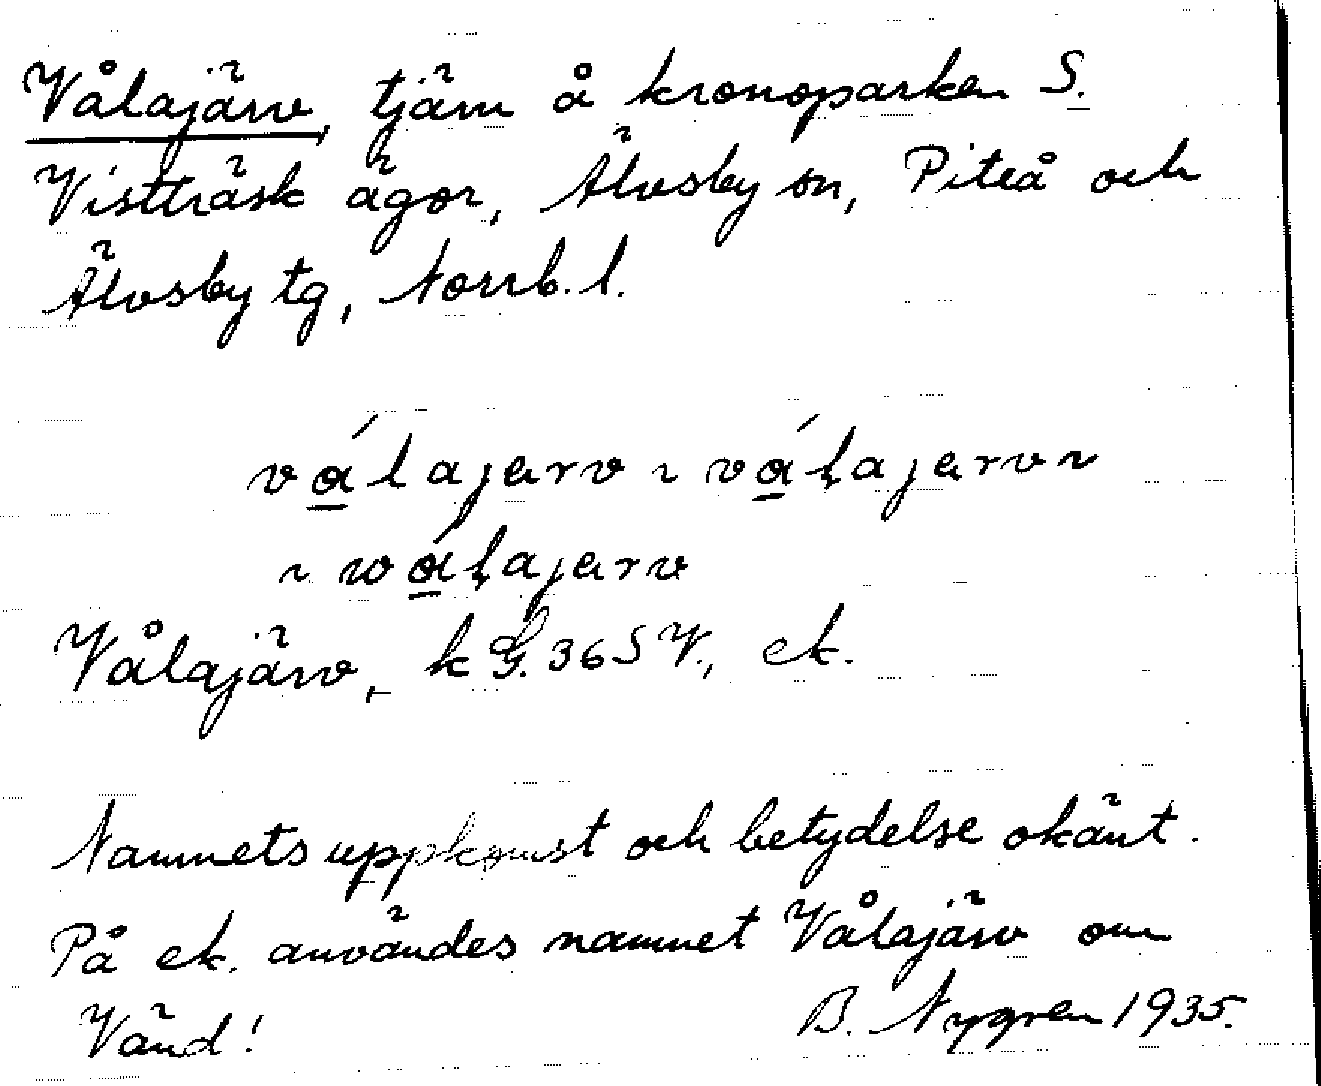 Vålajärv, tjärn å kronoparken S.
Vistträsk ägor, Älvsby sn, Piteå och
Älvsby tg, Norrb. l.
válajarv ~ váļajarv
~ wáļajarv
Vålajärv, k G. 36 SV., ek.
Namnets uppkomst och betydelse okänt.
På ek. användes namnet Vålajärv om
Vänd! B. Nygren 1935.